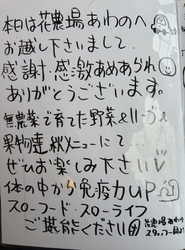 本日は花農場あわのへ
お越し下さいまして
感謝・感激あめあられ
ありがとうございます。
無農薬で育てた野菜&ハーブ&
果物達がメニューにて
ぜひお楽しみ下さい
体の中から免疫力UP
スローフード・スローライフ
ご堪能ください
花農場あわの
スタッフ一同